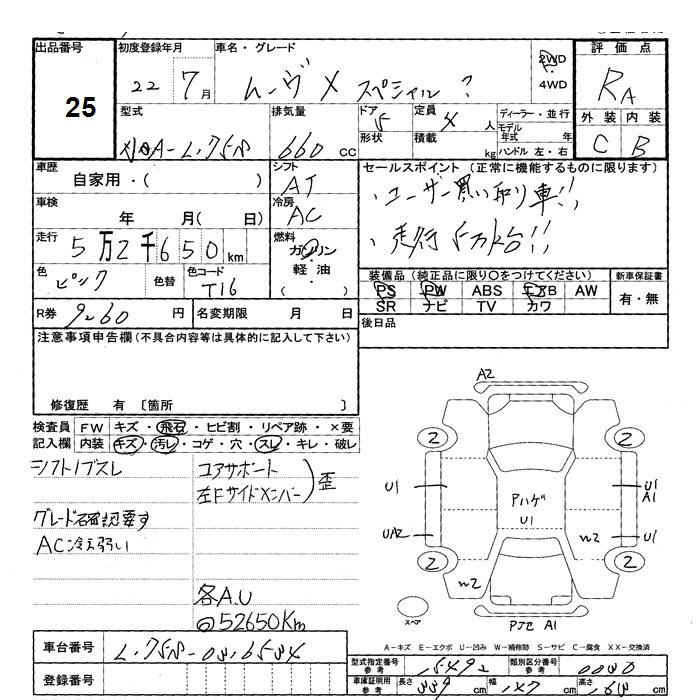 出品番号 初度登録年月 車名・グレード 評価点
25 22 7月 ムーヴ X スペシャル ? 2WD
4WD RA
型式 排気量 ドア 5 定員 4 人 ディーラー・並行 外装 内装
DBA-L175S 660 cc 形状 積載 kg モデル年式 年 ハンドル 左・右 C B
車歴 自家用・( ) シフト AT セールスポイント (正常に機能するものに限ります)
車検 年 月( 日) 冷房 AC ・ユーザー買い取り車!!
走行 5万2千650km 燃料 ガソリン・軽油・( ) ・走行5万km台!!
色 ピンク 色替 色コード T16 装備品 (純正品に限り○をつけてください) 新車保証書
PS PW ABS エアB AW 有・無
SR ナビ TV カワ
R券 9260円 名変期限 月 日 後日品
注意事項申告欄(不具合内容等は具体的に記入して下さい)
修復歴 有 〔箇所 〕
検査員 FW キズ・飛石・ヒビ割・リペア跡・×要
記入欄 内装 キズ・汚レ・コゲ・穴・スレ・キレ・破レ
シフトノブスレ コアサポート
左Fサイドメンバー)歪
グレード確認要す
AC冷え弱い
各A.U
52650Km
A2
2 2
U1 アハゲ U1 U1
A1
UA2 W2 U1
2 2
W2
スペア アシセ A1
A－キズ E－エクボ U－凹み W－補修跡 S－サビ C－腐食 XX－交換済
車台番号 L175S-0316534 型式指定番号 参考 15492 類別区分番号 参考 0030
登録番号 車庫証明用 参考 長さ 339 cm 幅 147 cm 高さ 163 cm